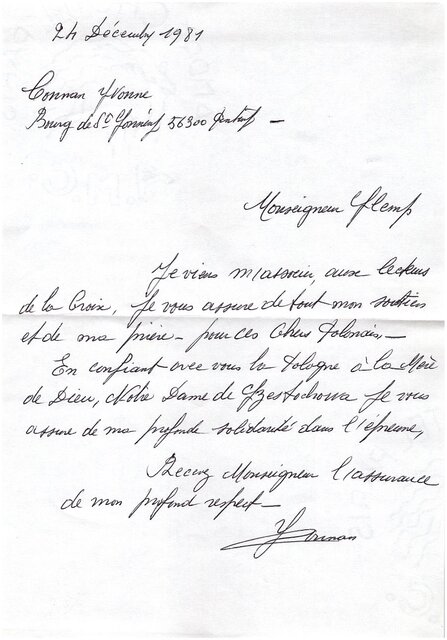 24 Décembre 1981
Connan Yvonne
Bourg de St 56300 Pontivy —
Monseigneur Glemp
Je viens m'associer, aux lecteurs
de la Croix, Je vous assure de tout mon soutien
et de ma prière — pour ces chers Polonais —
En confiant avec vous la Pologne à la Mère
de Dieu, Notre Dame de Czestochowa Je vous
assure de ma profonde solidarité dans l'épreuve,
Recevez Monseigneur l'assurance
de mon profond respect —
YConnan